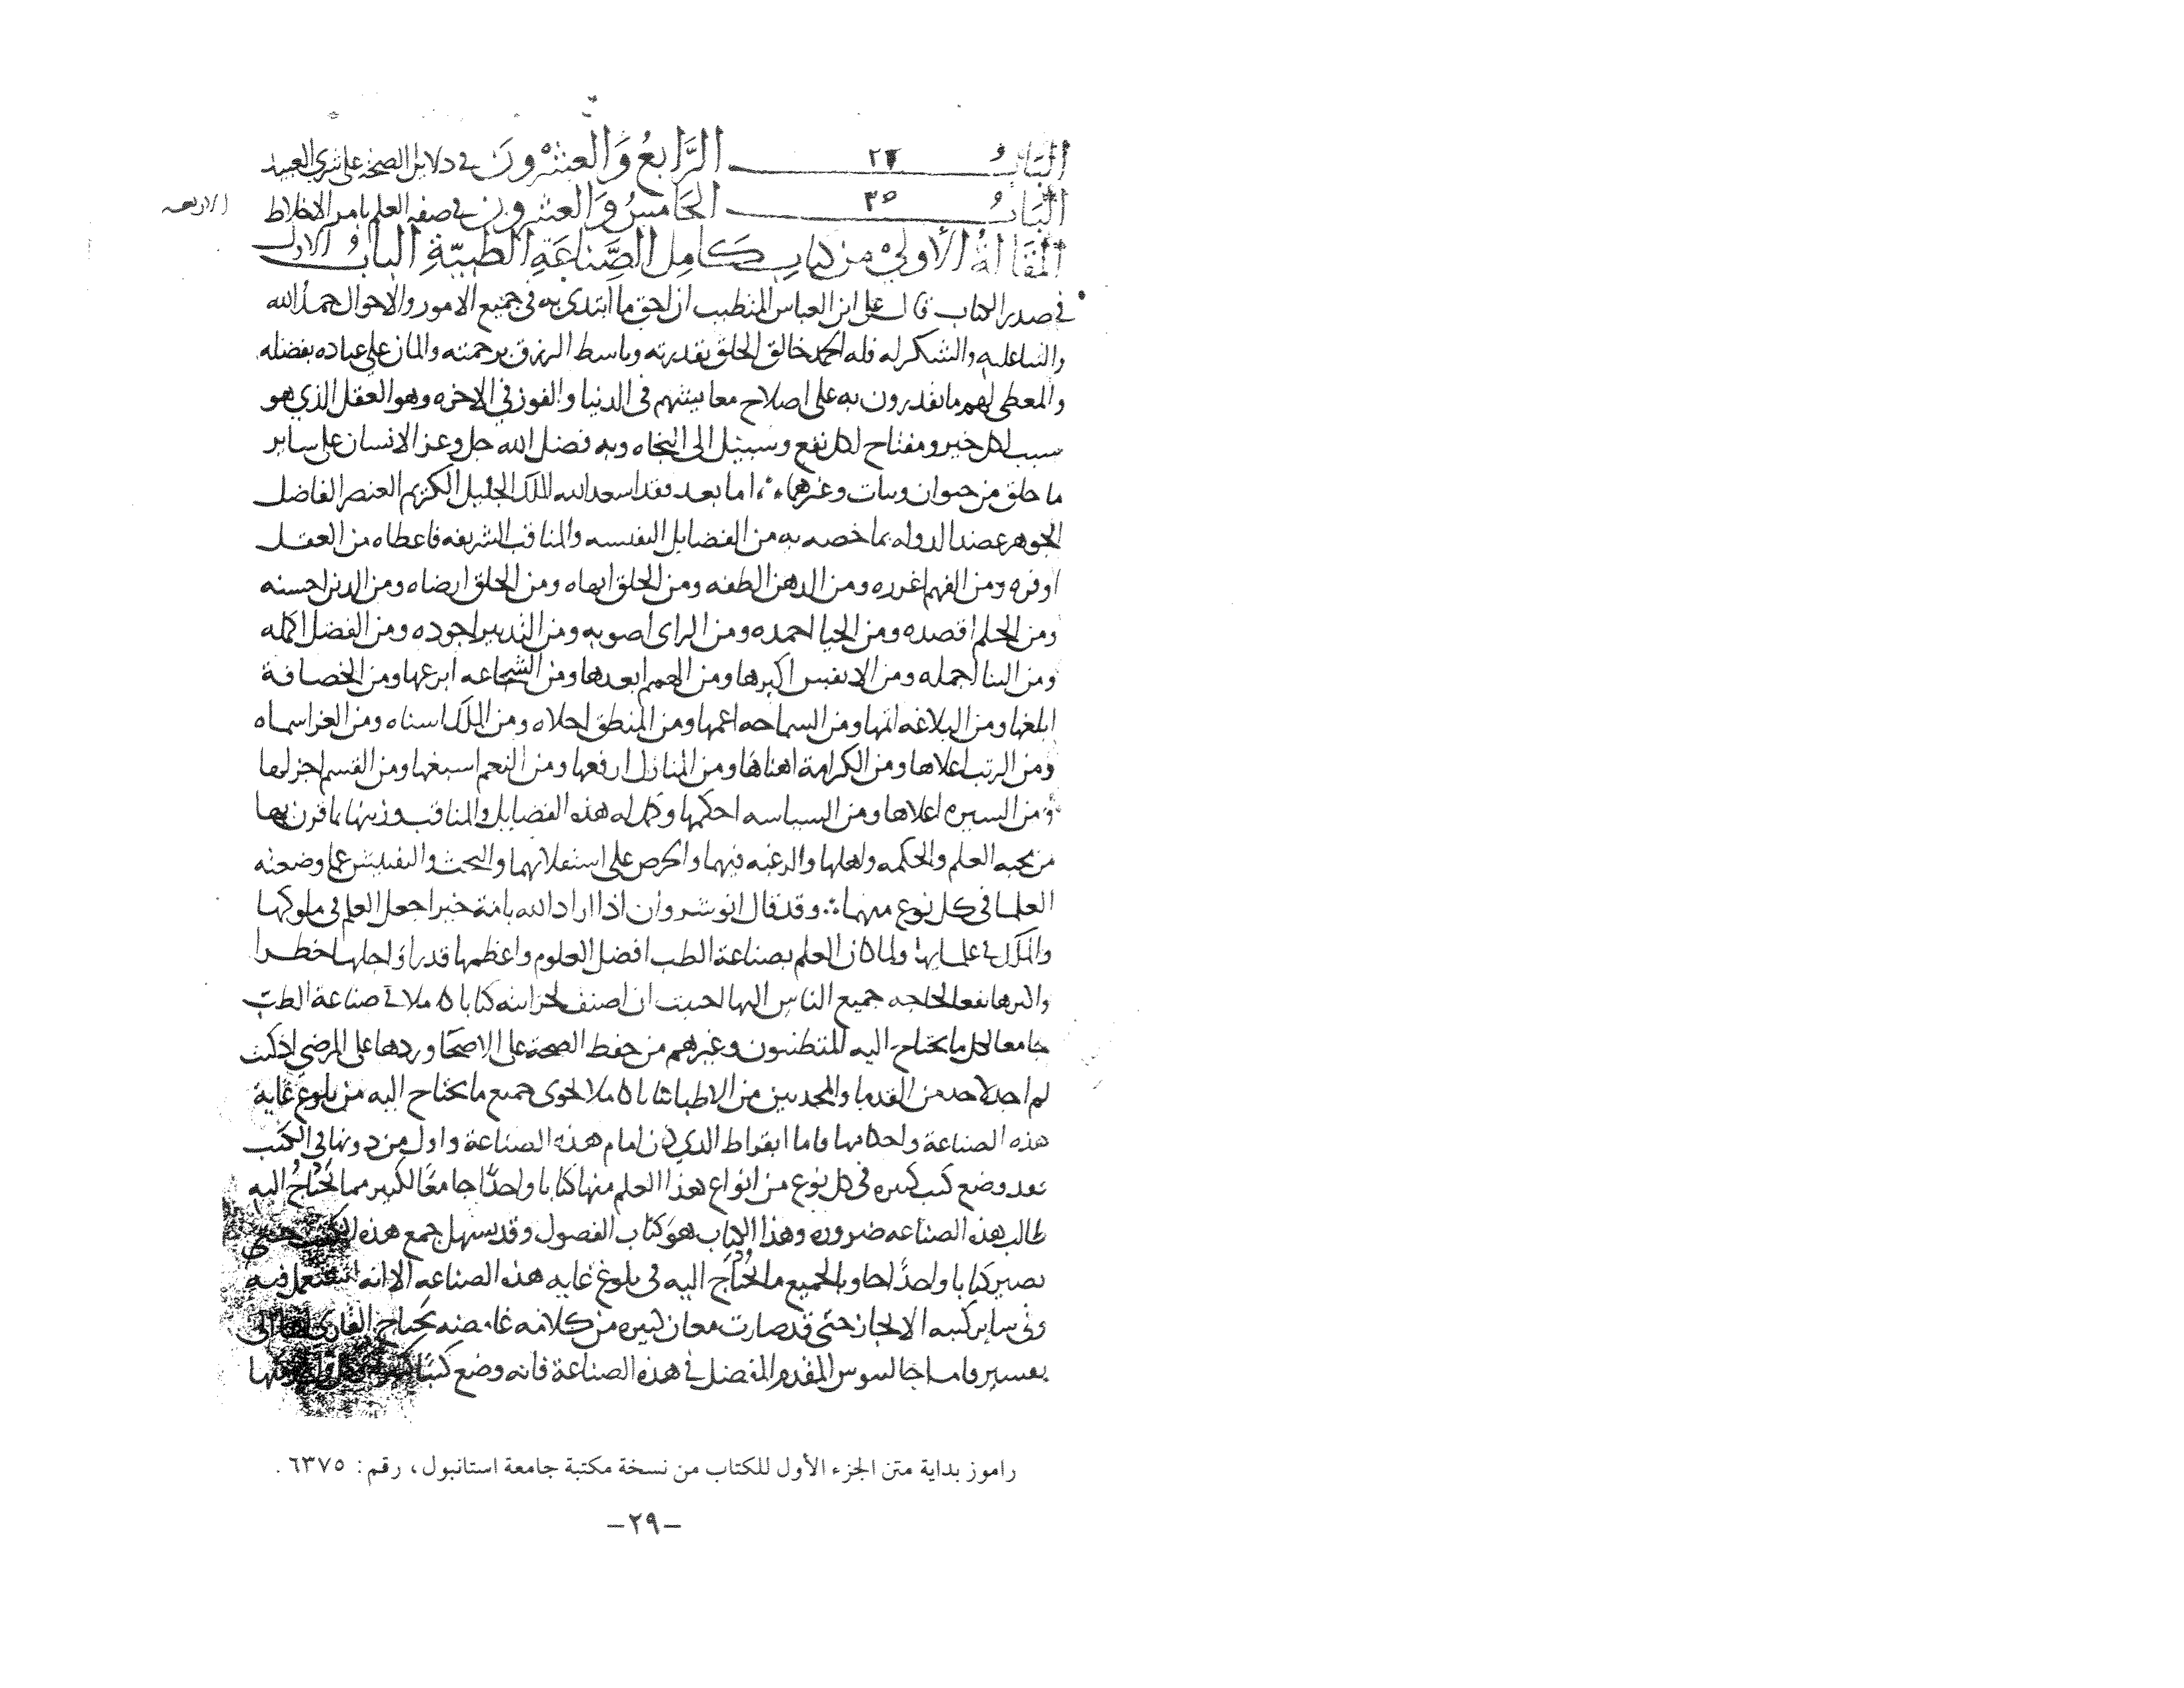 الباب ٢٤ الرابع والعشرون في دلايل الصحة على شرى العبيد
الباب ٢٥ الخامس والعشرون في صفه العلم بامر الاخلاط
الاربعه
المقالة الأولى من كتاب كامل الصناعة الطبية الباب الاول
في صدر الكتاب قال على ابن العباس المتطبب ان احق ما ابتدى به في جميع الامور والاحوال حمد الله
والثنا عليه والشكر له فله الحمد خالق الخلق بقدرته وباسط الرزق برحمته والمان على عباده بفضله
والمعطى لهم ما يقدرون به على اصلاح معايشهم في الدنيا والفوز في الاخره وهو العقل الذي هو
سبب لكل خير ومفتاح لكل نفع وسبيل الى النجاه وبه فضل الله جل وعز الانسان على ساير
ما خلق من حيوان ونبات وغيرهما اما بعد فقد اسعد الله الملك الجليل الكريم العنصر الفاضل
الجوهر عضد الدوله بما خصه به من الفضايل النفيسه والمناقب الشريفه فاعطاه من العقل
اوفره ومن الفهم اغزره ومن الذهن الطفه ومن الخلق ابهاه ومن الخلق ارضاه ومن الدين احسنه
ومن الحلم اقصده ومن الحيا احمده ومن الراى اصوبه ومن التدبير اجوده ومن الفضل اكمله
ومن الثنا اجمله ومن الانفس اكبرها ومن الهمم ابعدها ومن الشجاعه ابرعها ومن الحصافة
ابلغها ومن البلاغه اتمها ومن السماحه اعمها ومن المنطق احلاه ومن الملك اسناه ومن العز اسماه
ومن الرتب اعلاها ومن الكرامة اهناها ومن المنازل ارفعها ومن النعم اسبغها ومن القسم اجزلها
ومن السيره اعلاها ومن السياسه احكمها وكمل له هذه الفضايل والمناقب وزينها بما قرن بها
من محبه العلم والحكمه واهلها والرغبه فيهما والحرص على والبحث والتفتيش عما وضعته
العلما في كل نوع منهما وقد قال انوشروان اذا اراد الله بامة خيرا جعل العلم في ملوكها
والملك في علمايها ولما كان العلم بصناعة الطب افضل العلوم واعظمها قدرا واجلها خطرا
واكثرها نفعا لحاجه جميع الناس اليها احببت ان اصنف لخزانته كتابا كاملا في صناعة الطب
جامعا لكل ما يحتاج اليه المتطببون وغيرهم من حفظ الصحة على الاصحا وردها على المرضى اذ كنت
لم اجد لاحد من القدما والمحدثين من الاطبا كتابا كاملا يحوى جميع ما يحتاج اليه من بلوغ غاية
هذه الصناعة واحكامها فاما ابقراط الذي كان امام هذه الصناعة واول من دونها في الكتب
فقد وضع كتب كثيره في كل نوع من انواع هذا العلم منها كتابا واحدا جامعا لكثير مما يحتاج اليه
طالب هذه الصناعه ضروره وهذا الكتاب هو كتاب الفصول وقد يسهل جمع هذه الكتب حتى
تصير كتابا واحدا حاويا لجميع ما يحتاج اليه في بلوغ غايه هذه الصناعه الا انه استعمل فيه
وفي ساير كتبه الايجاز حتى قد صارت معان كثيره من كلامه غامضه يحتاج القارى لها الى
تفسير واما جالينوس المقدم المفضل في هذه الصناعة فانه وضع كتبا
راموز بداية متن الجزء الأول للكتاب من نسخة مكتبة جامعة استانبول، رقم: ٦٣٧٥ .
–٢٩–